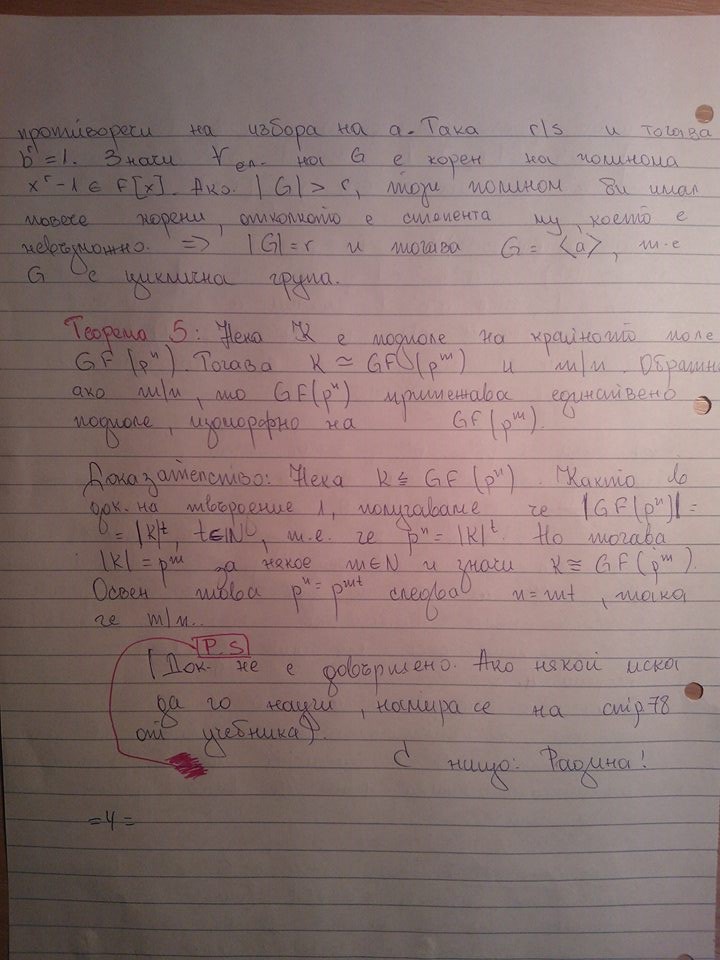 противоречи на избора на a. Така r/s и тогава
b^r = 1. Значи ∀ ел. на G е корен на полинома
x^r - 1 ∈ F[x]. Ако |G| > r, този полином би имал
повече корени, отколкото е степента му, което е
невъзможно. => |G| = r и тогава G = <a>, т.е
G е циклична група.
Теорема 5: Нека K е подполе на крайното поле
GF(p^n). Тогава K ≃ GF(p^m) и m/n. Обратно
ако m/n, то GF(p^n) притежава единствено
подполе, изоморфно на GF(p^m).
Доказателство: Нека K ≦ GF(p^n). Както в
док. на твърдение 1, получаваме че |GF(p^n)| =
= |K|^t, t∈N, т.е. че p^n = |K|^t. Но тогава
|K| = p^m за някое m∈N и значи K ≅ GF(p^m).
Освен това p^n = p^mt следва n = mt, така
че m/n..
P.S
[Док. не е довършено. Ако някой иска
да го научи, намира се на стр 78
от учебника).
С нищо: Радина!
=4=